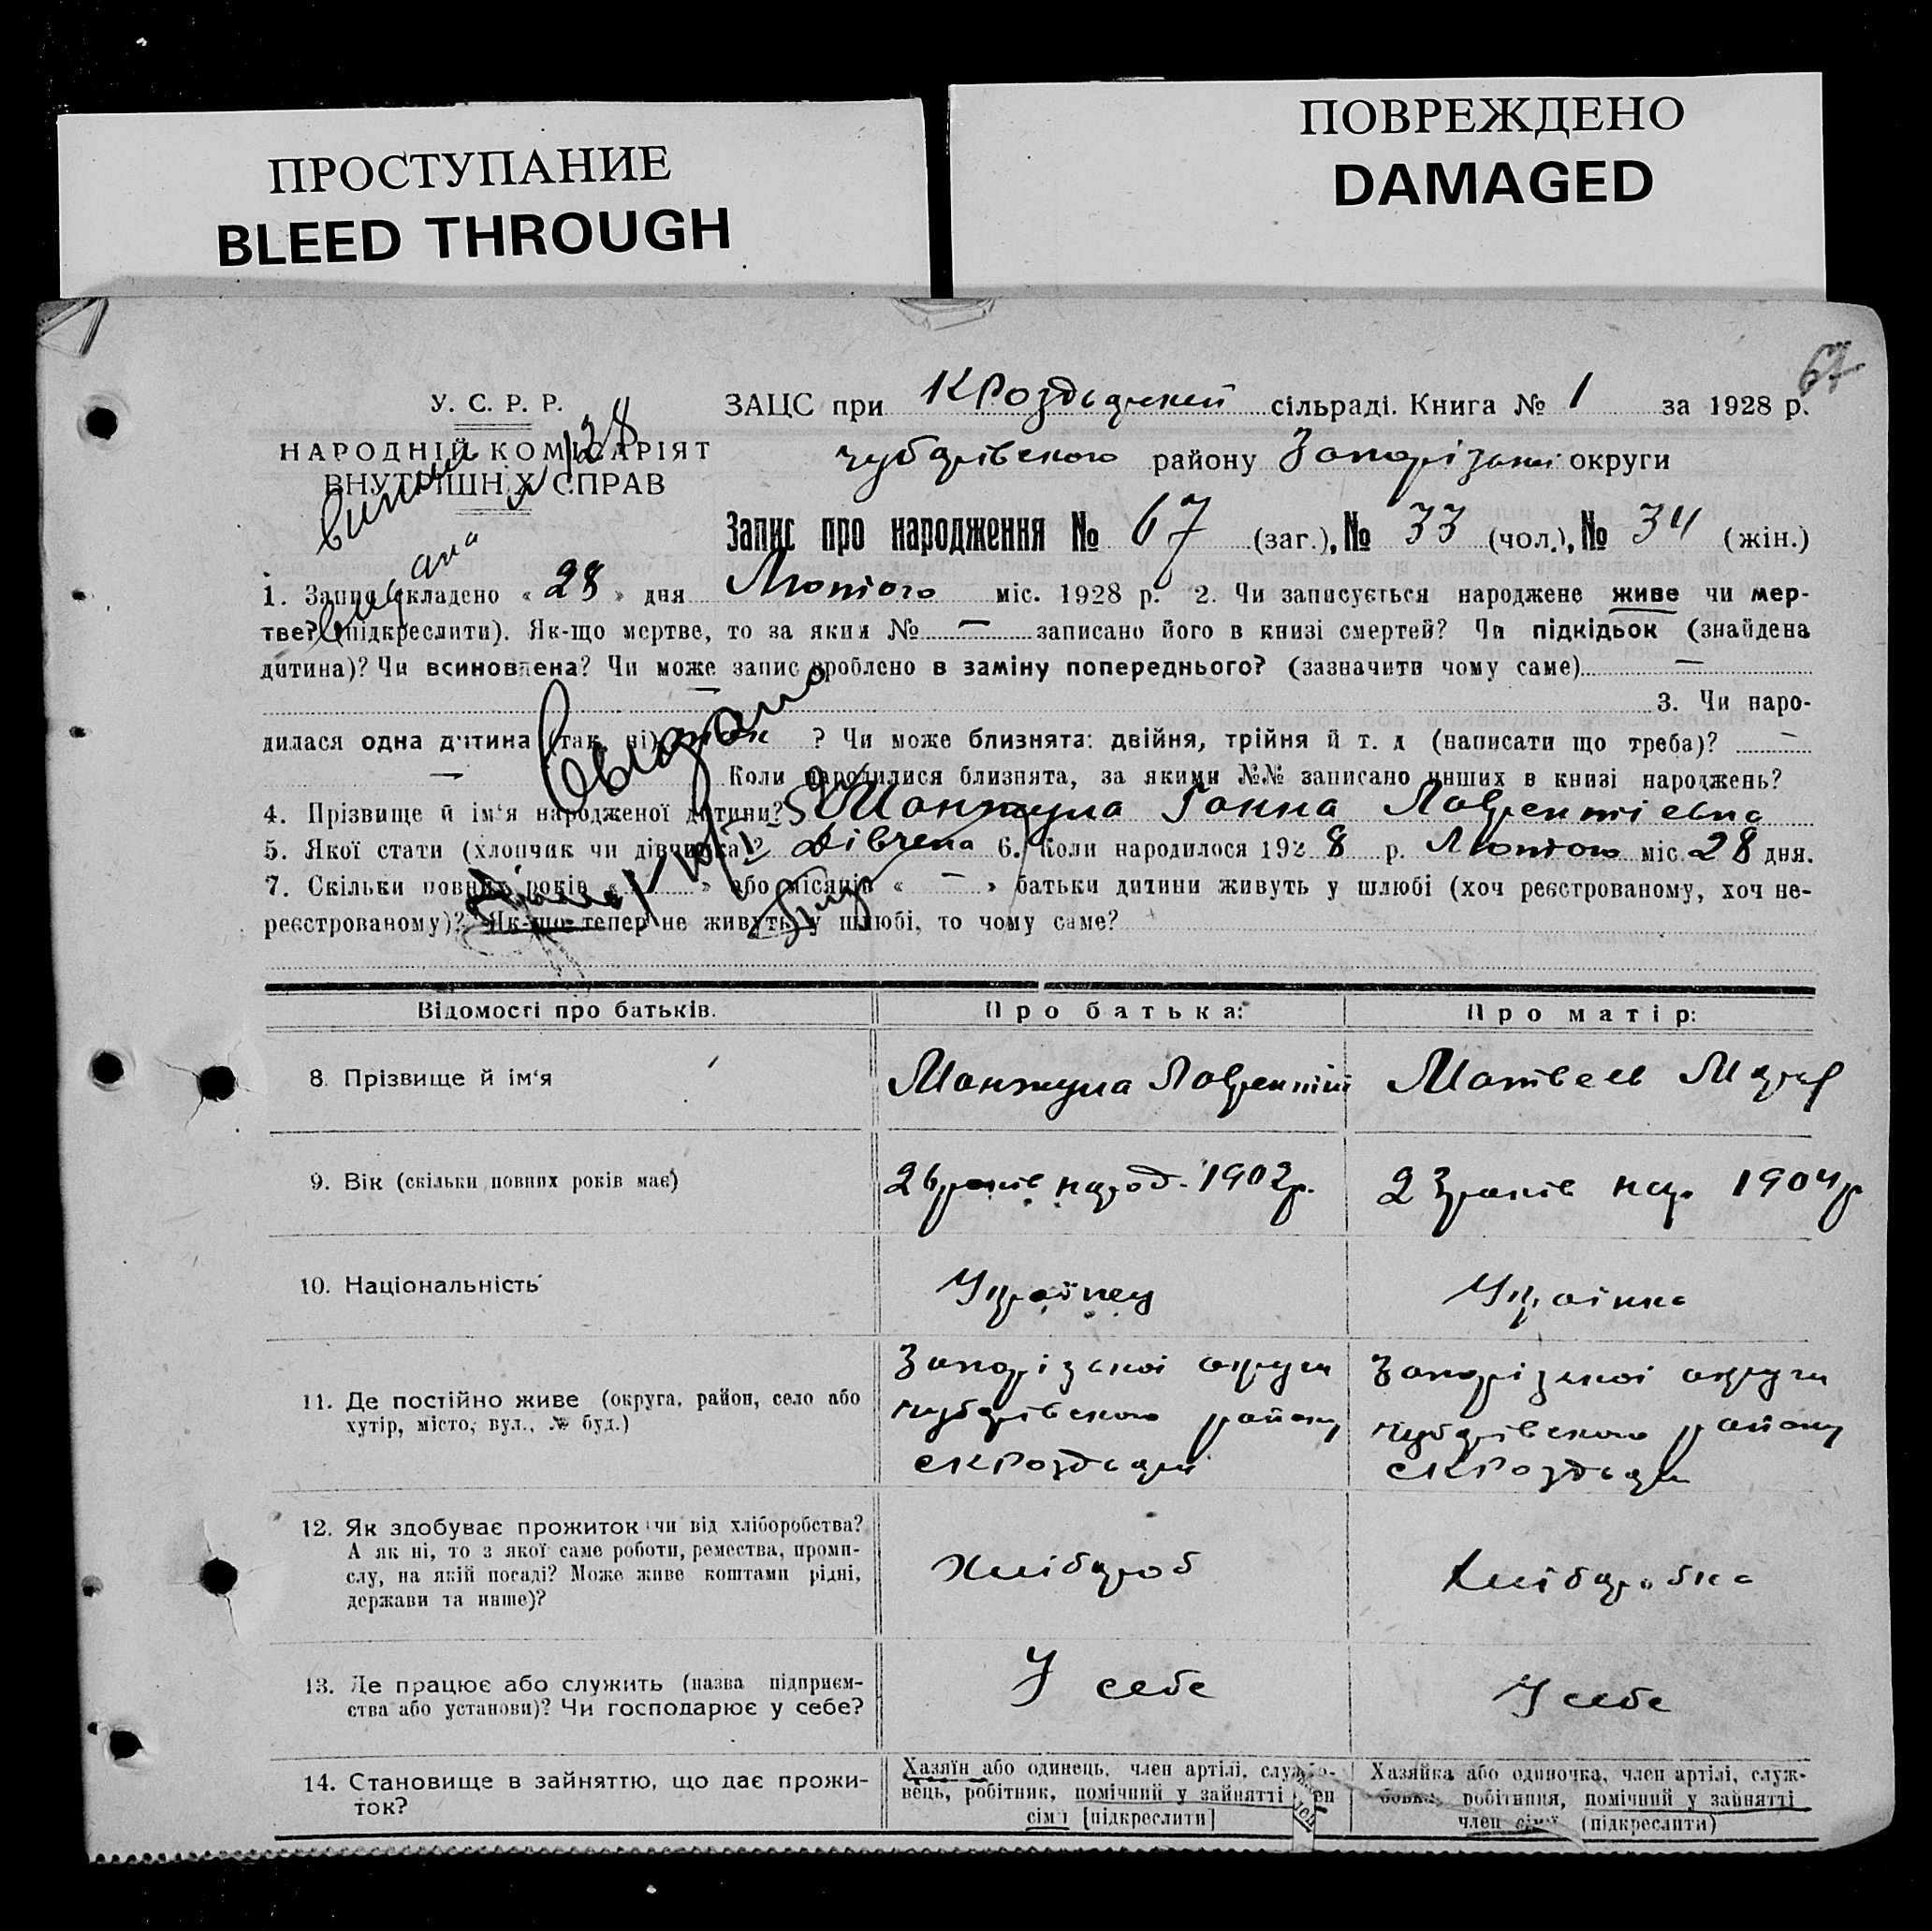 ПРОСТУПАНИЕ
BLEED THROUGH
ПОВРЕЖДЕНО
DAMAGED
67
У. С. Р. Р.
НАРОДНІЙ КОМІСАРІЯТ
ВНУТРІШНІХ СПРАВ
ЗАЦС при КРоздорській сільраді. Книга № 1 за 1928 р.
чубарівського району Запорізької округи
Запис про народження № 67 (заг.), № 33 (чол.), № 34 (жін.)
1. Запис складено «28» дня Лютого міс. 1928 р. 2. Чи записується народжене живе чи мер-
тве? (підкреслити). Як-що мертве, то за яким № — записано його в книзі смертей? Чи підкідьок (знайдена
дитина)? Чи всиновлена? Чи може запис зроблено в заміну попереднього? (зазначити чому саме) —
3. Чи наро-
дилася одна дитина (так, ні) так ? Чи може близнята: двійня, трійня й т. д (написати що треба)? —
— Коли народилися близнята, за якими №№ записано инших в книзі народжень?
4. Прізвище й ім'я народженої дитини? Манжула Ганна Лаврентіевна
5. Якої стати (хлопчик чи дівчинка)? Дівчена 6. Коли народилося 1928 р. Лютого міс. 28 дня.
7. Скільки повних років « » або місяців « — » батьки дитини живуть у шлюбі (хоч реєстрованому, хоч не-
реєстрованому)? Як-що тепер не живуть у шлюбі, то чому саме?
Відомості про батьків.
Про батька:
Про матір:
8. Прізвище й ім'я
Манжула Лаврентій
Матвеев
9. Вік (скільки повних років має)
26 років народ. 1902р.
23 років нар. 1904р
10. Національність
Україпец
Українка
11. Де постійно живе (округа, район, село або
хутір, місто, вул., № буд.)
Запорізької округи
чубарівського району
скРоздори
Запорізької округи
чубарівського району
скРоздори
12. Як здобуває прожиток чи від хліборобства?
А як ні, то з якої саме роботи, ремества, проми-
слу, на якій посаді? Може живе коштами рідні,
держави та инше)?
Хлібороб
Хліборобка
13. Де працює або служить (назва підприєм-
ства або установи)? Чи господарює у себе?
У себе
У себе
14. Становище в зайняттю, що дає прожи-
ток?
Хазяїн або одинець, член артілі, службо-
вець, робітник, помічний у зайнятті член
сім'ї [підкреслити]
Хазяйка або одиночка, член артілі, служ-
бовка, робітниця, помічний у зайнятті
член сім'ї (підкреслити)